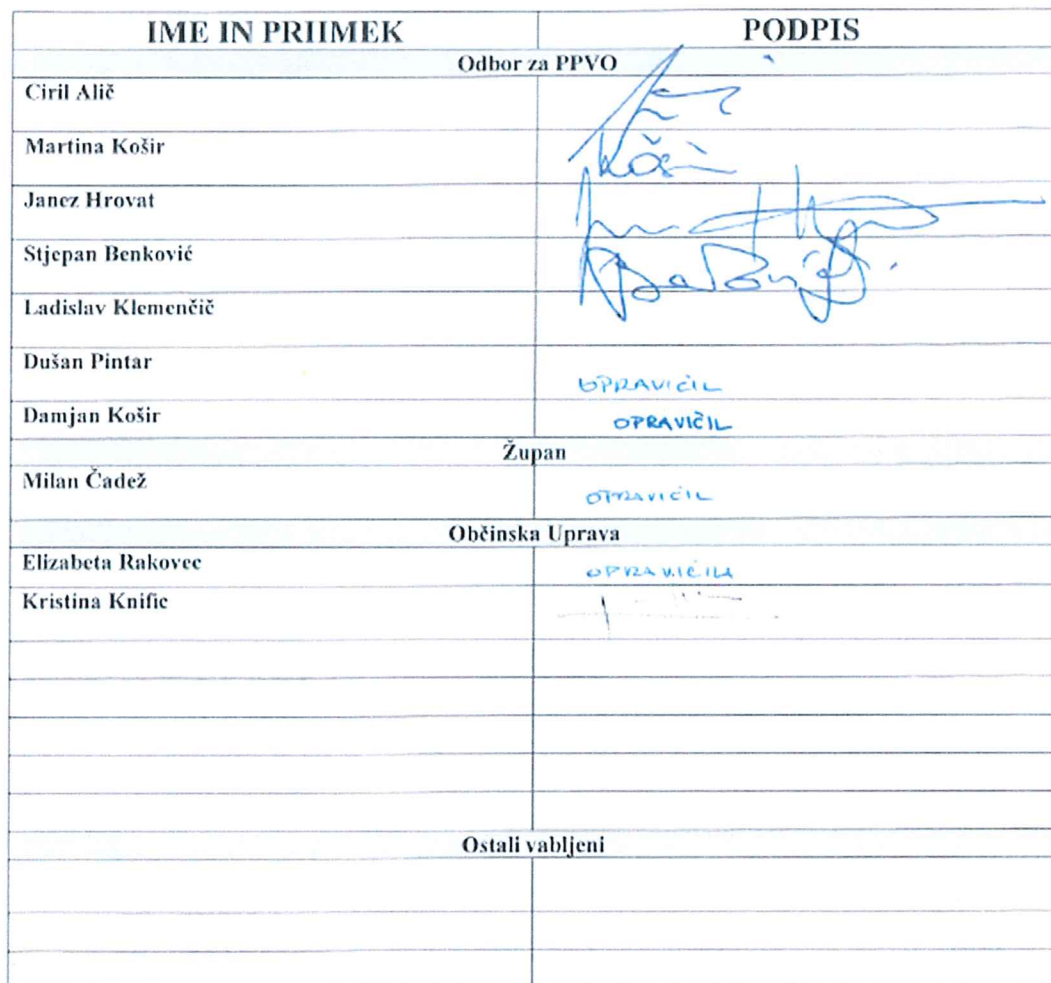 IME IN PRIIMEK PODPIS
Odbor za PPVO
Ciril Alič
Martina Košir
Janez Hrovat
Stjepan Benković
Ladislav Klemenčič
Dušan Pintar OPRAVIČIL
Damjan Košir OPRAVIČIL
Župan
Milan Čadež OPRAVIČIL
Občinska Uprava
Elizabeta Rakovec OPRAVIČILA
Kristina Knific
Ostali vabljeni